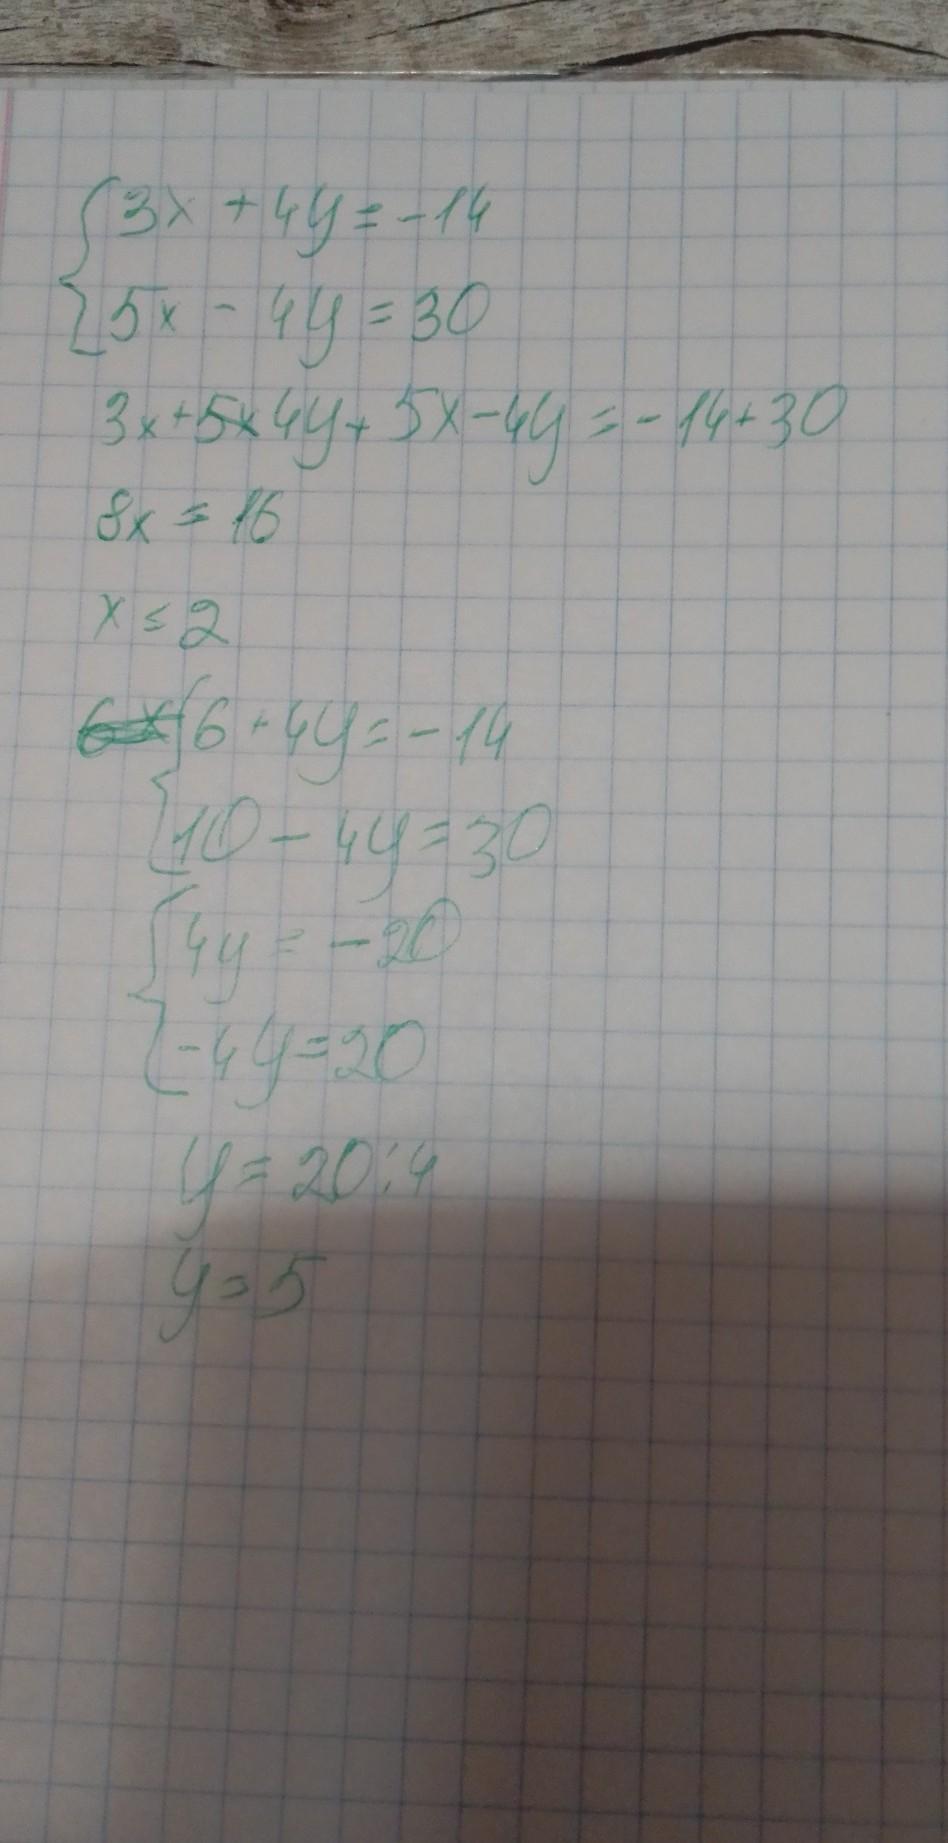 3x + 4y = -14
5x - 4y = 30
3x + 5x 4y + 5x - 4y = -14 + 30
8x = 16
x = 2
6 + 4y = -14
10 - 4y = 30
4y = -20
-4y = 20
y = 20 : 4
y = 5